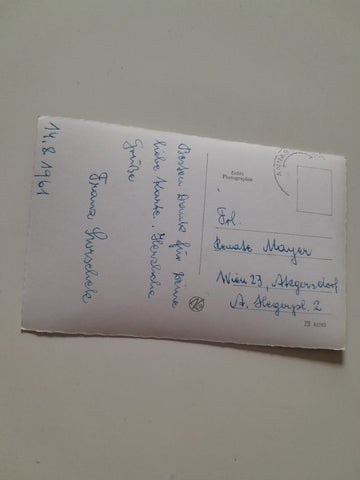 14. 8 1961
Besten Dank für Deine
liebe Karte. Herzliche
Grüße
Franz
Echte
Photographie
Frl.
Renate Mayer
Wien 23, Atzgersdorf
A. Hegerpl. 2